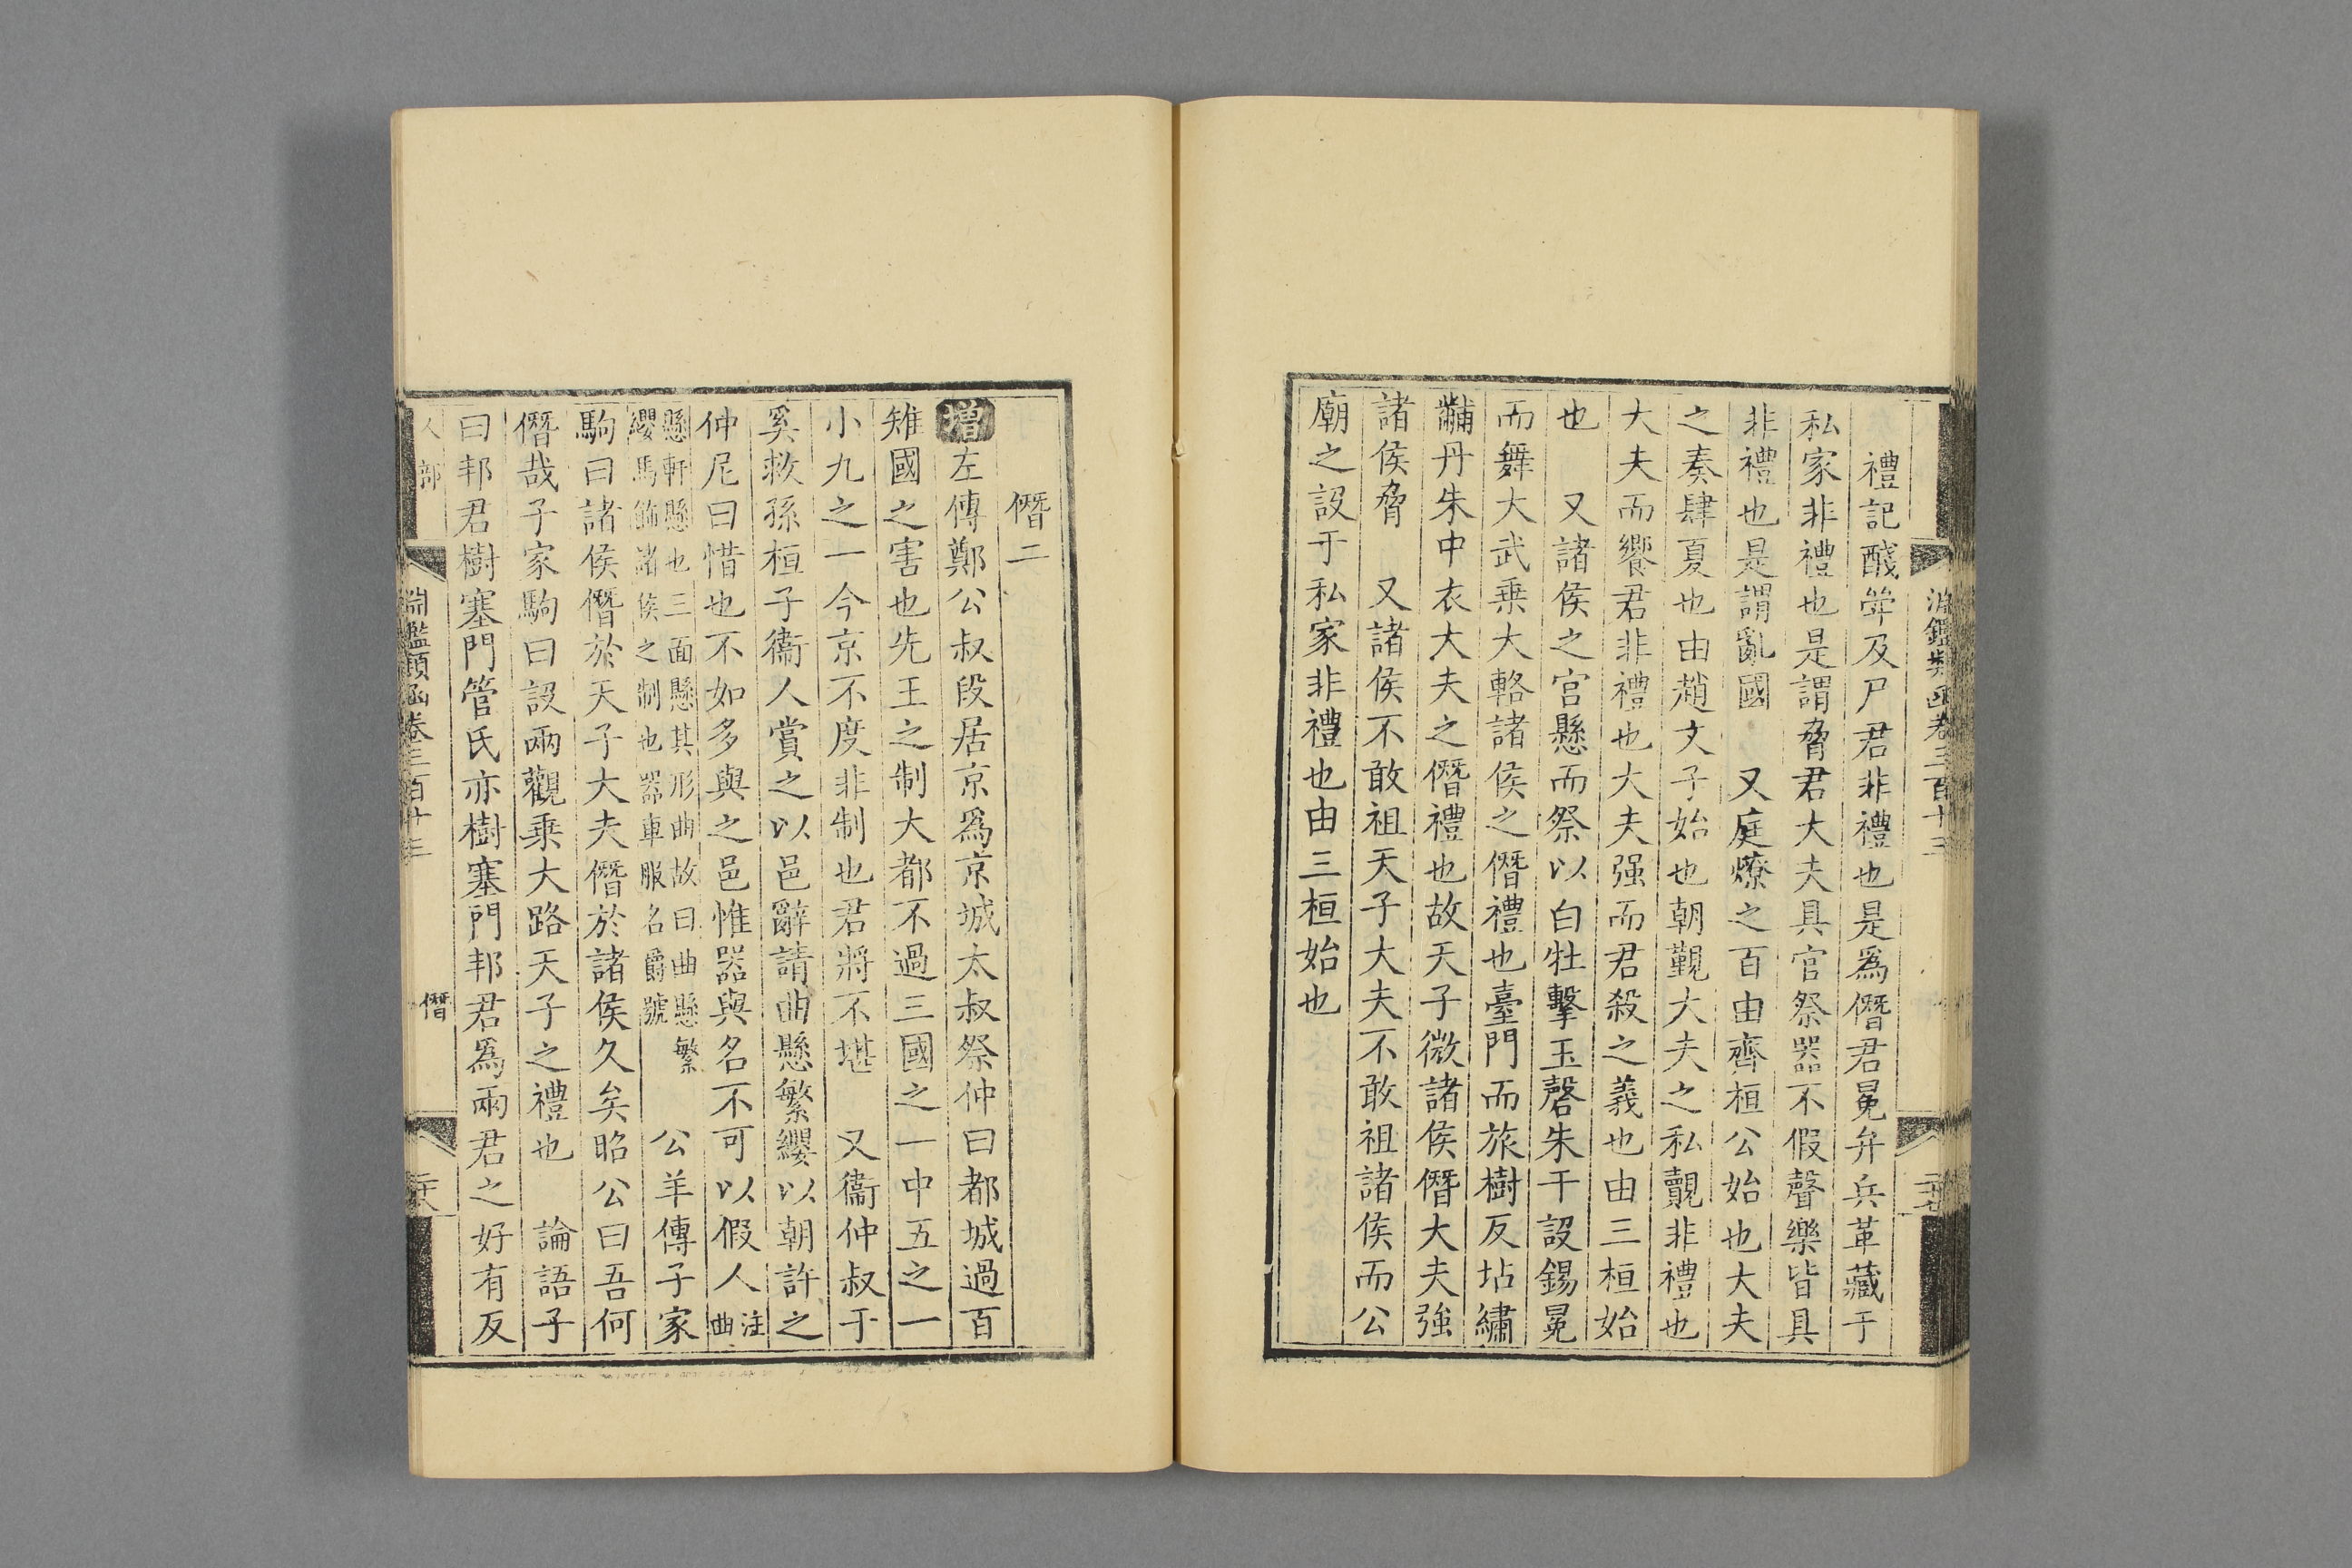 淵鑑類函卷三百十三
禮記醆斝及尸君非禮也是爲僭君冕弁兵革藏于
私家非禮也是謂脅君大夫具官祭器不假聲樂皆具
非禮也是謂亂國 又庭燎之百由齊桓公始也大夫
之奏肆夏也由趙文子始也朝覲大夫之私覿非禮也
大夫而饗君非禮也大夫强而君殺之義也由三桓始
也 又諸侯之宫懸而祭以白牡擊玉磬朱干設錫冕
而舞大武乗大輅諸侯之僭禮也臺門而旅樹反坫繡
黼丹朱中衣大夫之僭禮也故天子微諸侯僭大夫強
諸侯脅 又諸侯不敢祖天子大夫不敢祖諸侯而公
廟之設于私家非禮也由三桓始也
僭二
增左傳鄭公叔段居京爲京城太叔祭仲曰都城過百
雉國之害也先王之制大都不過三國之一中五之一
小九之一今京不度非制也君將不堪 又衞仲叔于
奚救孫桓子衞人賞之以邑辭請曲懸繁纓以朝許之
仲尼曰惜也不如多與之邑惟器與名不可以假人注曲
懸軒懸也三面懸其形曲故曰曲懸繁
纓馬飾諸侯之制也器車服名爵號 公羊傳子家
駒曰諸侯僭於天子大夫僭於諸侯久矣昭公曰吾何
僭哉子家駒曰設兩觀乗大路天子之禮也 論語子
曰邦君樹塞門管氏亦樹塞門邦君爲兩君之好有反
人部 淵鑑類函卷三百十三 僭 二十八